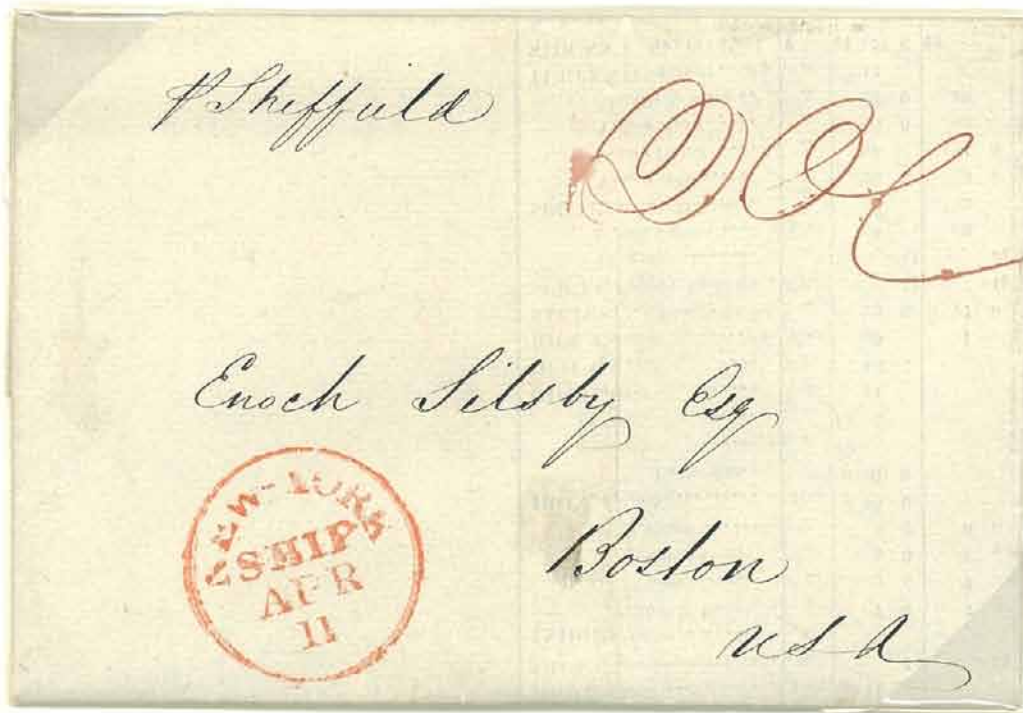 p Sheffield
Enoch Silsby Esq
Boston
USA
NEW-YORK
SHIP
APR
11